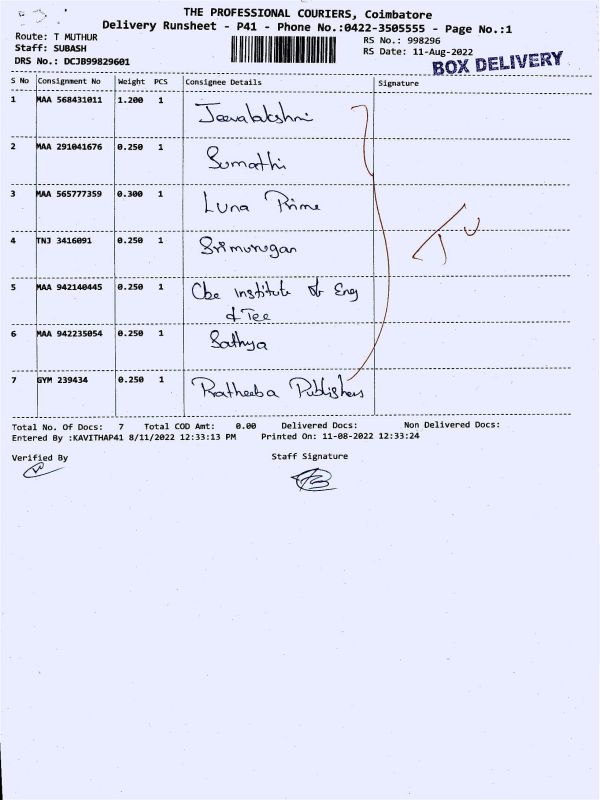 THE PROFESSIONAL COURIERS, Coimbatore
Delivery Runsheet - P41 - Phone No.:0422-3505555 - Page No.:1
Route: T MUTHUR
Staff: SUBASH
DRS No.: DCJB99829601
RS No.: 998296
RS Date: 11-Aug-2022
BOX DELIVERY
S No Consignment No Weight PCS Consignee Details Signature
1 MAA 568431011 1.200 1 Jeevalakshmi
2 MAA 291041676 0.250 1 Sumathi
3 MAA 565777359 0.300 1 Luna Prime
4 TNJ 3416091 0.250 1 Srimurugan
5 MAA 942140445 0.250 1 Cbe institute of Eng
& Tec
6 MAA 942235054 0.250 1 Sathya
7 GYM 239434 0.250 1 Pratheeba Publishers
Total No. Of Docs: 7 Total COD Amt: 0.00 Delivered Docs: Non Delivered Docs:
Entered By :KAVITHAP41 8/11/2022 12:33:13 PM Printed On: 11-08-2022 12:33:24
Verified By Staff Signature